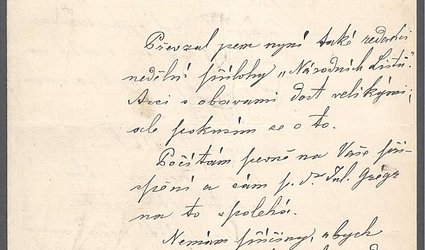 Převzal jsem nyní také redakci
nedělní přílohy „Národních Listů“.
Arci s obavami dost velikými;
ale pokusím se o to.
Počítám pevně na Vaše při-
spění a sám p. Dr. Jul. Grégr
na to spoléhá.
Nemám příčiny, abych